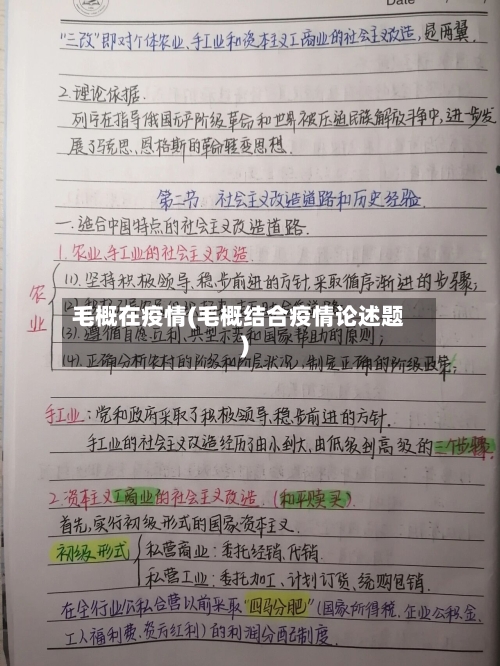 Date
"三改"即对个体农业、手工业和资本主义工商业的社会主义改造,是两翼.
2.理论依据.
列宁在指导俄国无产阶级革命和世界被压迫民族解放斗争中,进一步发
展了马克思、恩格斯的革命转变思想.
第二节 社会主义改造道路和历史经验.
一.适合中国特点的社会主义改造道路.
1.农业、手工业的社会主义改造.
农业
(1).坚持积极领导、稳步前进的方针,采取循序渐进的步骤;
毛概在疫情(毛概结合疫情论述题
)
(3).遵循自愿互利、典型示范和国家帮助的原则;
(4).正确分析农村的阶级和阶层状况,制定正确的阶级政策;
手工业:党和政府采取了积极领导、稳步前进的方针.
手工业的社会主义改造经历了由小到大、由低级到高级的三个步骤;
2.资本主义工商业的社会主义改造.(和平赎买)
首先,实行初级形式的国家资本主义.
初级形式
私营商业:委托经销、代销.
私营工业:委托加工、计划订货、统购包销.
在全行业公私合营以前采取"四马分肥"(国家所得税、企业公积金、
工人福利费、资方红利)的利润分配制度.